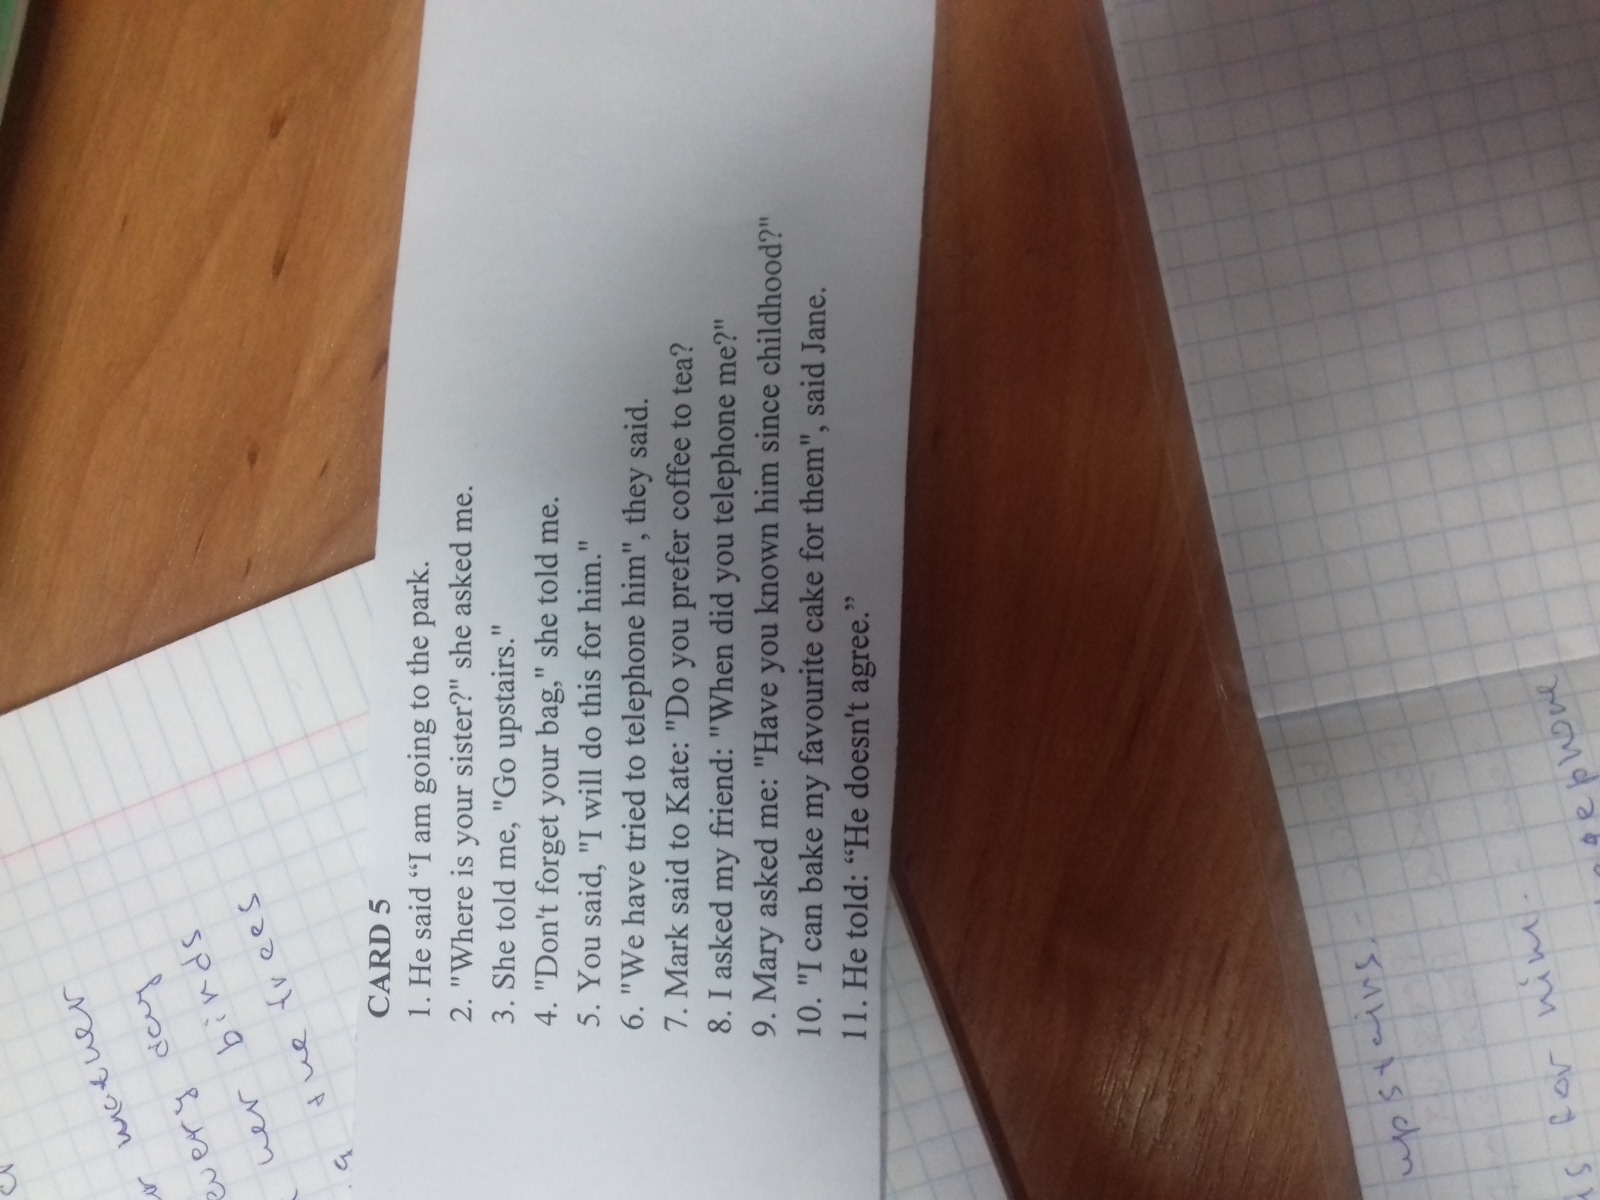 CARD 5
1. He said “I am going to the park.
2. "Where is your sister?" she asked me.
3. She told me, "Go upstairs."
4. "Don't forget your bag," she told me.
5. You said, "I will do this for him."
6. "We have tried to telephone him", they said.
7. Mark said to Kate: "Do you prefer coffee to tea?
8. I asked my friend: "When did you telephone me?"
9. Mary asked me: "Have you known him since childhood?"
10. "I can bake my favourite cake for them", said Jane.
11. He told: “He doesn't agree.”
birds
trees
upstairs.
for him.